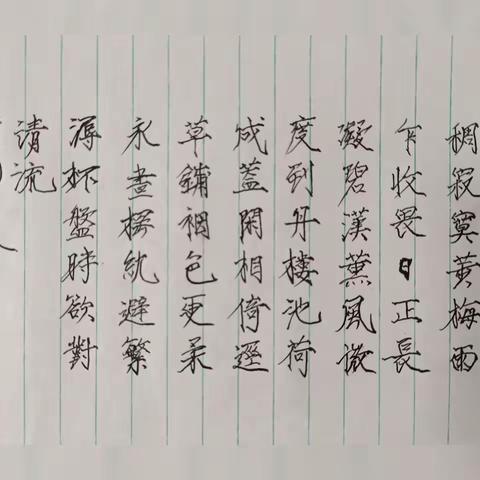 稠寂寞黄梅雨
乍收畏日正長
凝碧漢薰風微
度到丹樓池荷
成蓋閑相倚逕
草鋪裀色更柔
永晝楞紈避繁
溽杯盤時欲對
清流